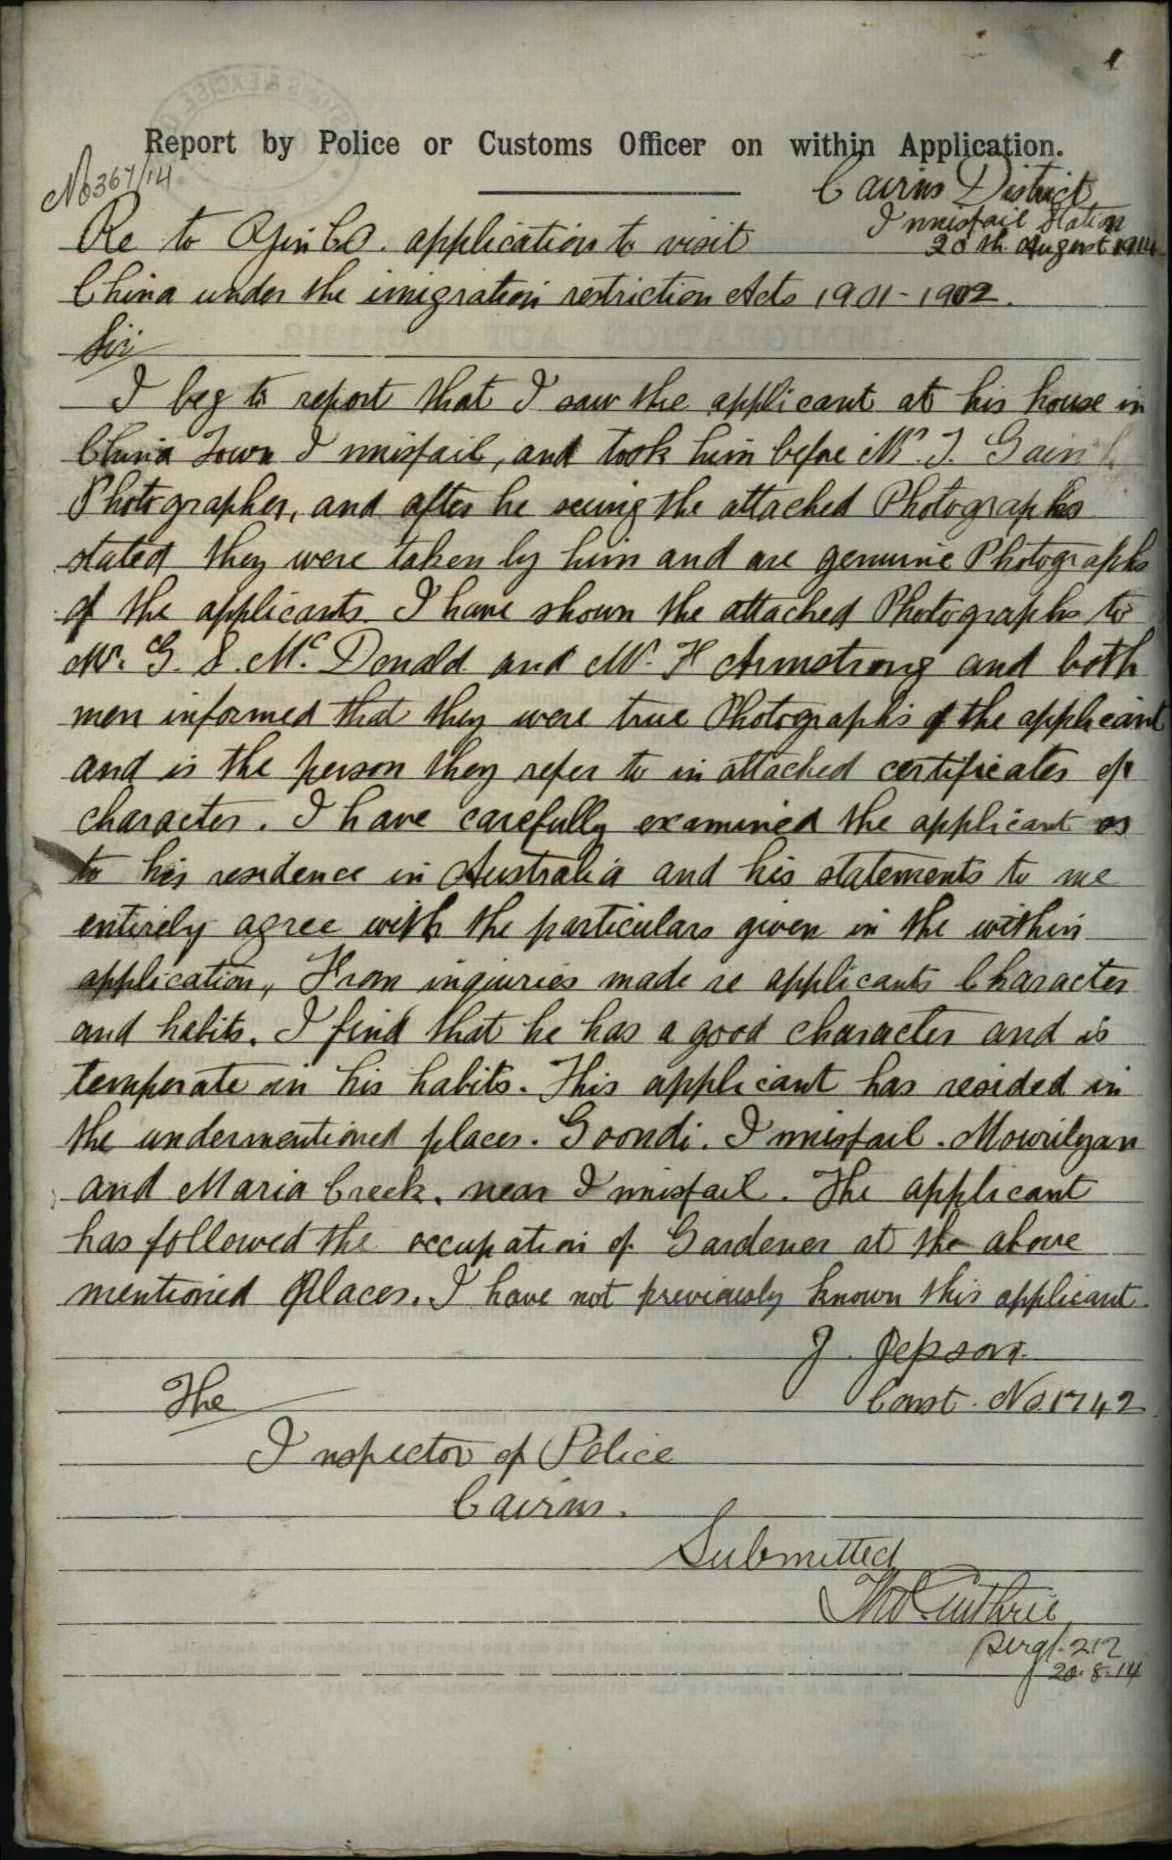 Report by Police or Customs Officer on within Application.
No 367/14
Cairns District
Innisfail Station
20th August 1914
Re to application to visit
China under the imigration restriction Acts 1901-1902.
Sir
I beg to report that I saw the applicant at his house in
China Town Innisfail, and took him before Mr. J.
Photographer, and after he seeing the attached Photographs
stated they were taken by him and are genuine Photographs
of the applicants. I have shown the attached Photographs to
Mr. G. S. McDonald and Mr. H Armstrong and both
men informed that they were true Photographs of the applicant
and is the person they refer to in attached certificates of
character. I have carefully examined the applicant as
to his residence in Australia and his statements to me
entirely agree with the particulars given in the within
application,, From inquiries made re applicants Character
and habits. I find that he has a good character and is
temperate in his habits. This applicant has resided in
the undermentioned places. Goondi. Innisfail. Mourilyan
and Maria Creek. near Innisfail. The applicant
has followed the occupation of Gardener at the above
mentioned Places. I have not previously known this applicant.
J. Jepson.
Const. No. 1742
The
Inspector of Police
Cairns.
Submitted
Thos Guthrie
Sergt. 212
20.8.14